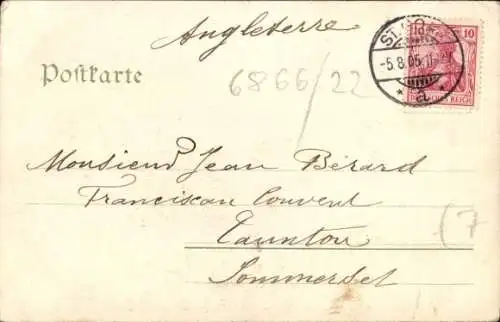 Angleterre
10
-5.8.05.11-
REICH
a
Postkarte
6866/22
Monsieur Jean Bérard
Franciscan Convent
(7
Taunton
Sommerset